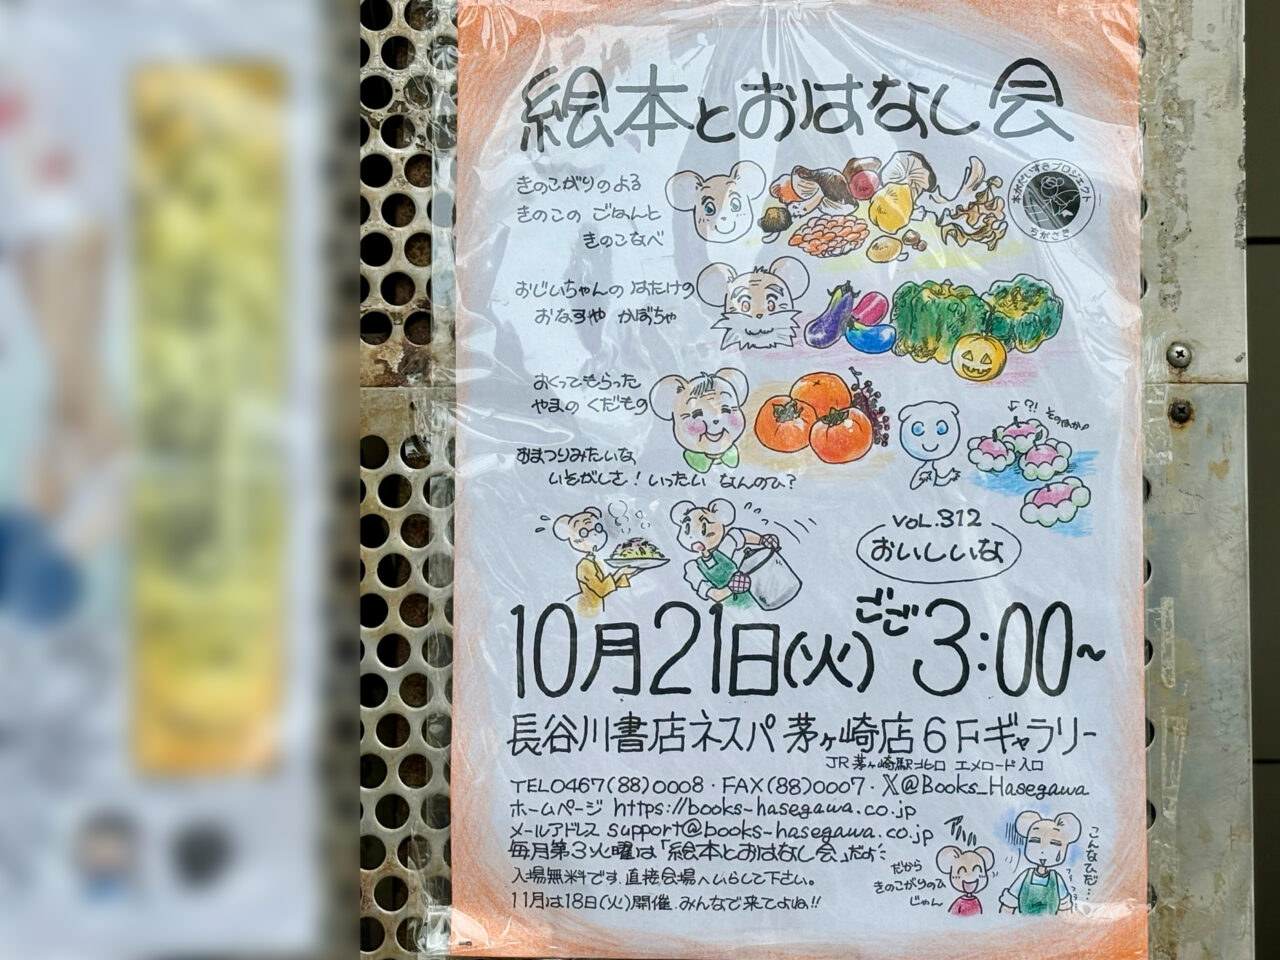 絵本とおはなし会
きのこがりのよる
きのこの ごはんと
きのこなべ
本がだいすきプロジェクト
ちがさき
おじいちゃんの はたけの
おなすや かぼちゃ
おくってもらった
やまの くだもの
?! そのほか!
おまつりみたいな
いそがしさ！いったい なんのひ？
VOL.312
おいしいな
10月21日(火)ごご3:00~
長谷川書店ネスパ 茅ヶ崎店6Fギャラリー
JR茅ヶ崎駅北口 エメロード入口
TEL0467(88)0008・FAX(88)0007・X@Books_Hasegawa
ホームページ https://books-hasegawa.co.jp
メールアドレス support@books-hasegawa.co.jp
毎月第3火曜は「絵本とおはなし会」だよ
入場無料です.直接会場へいらして下さい。
11月は18日(火)開催.みんなで来てよね!!
だから
きのこがりのひ
じゃん
こんなひだ…